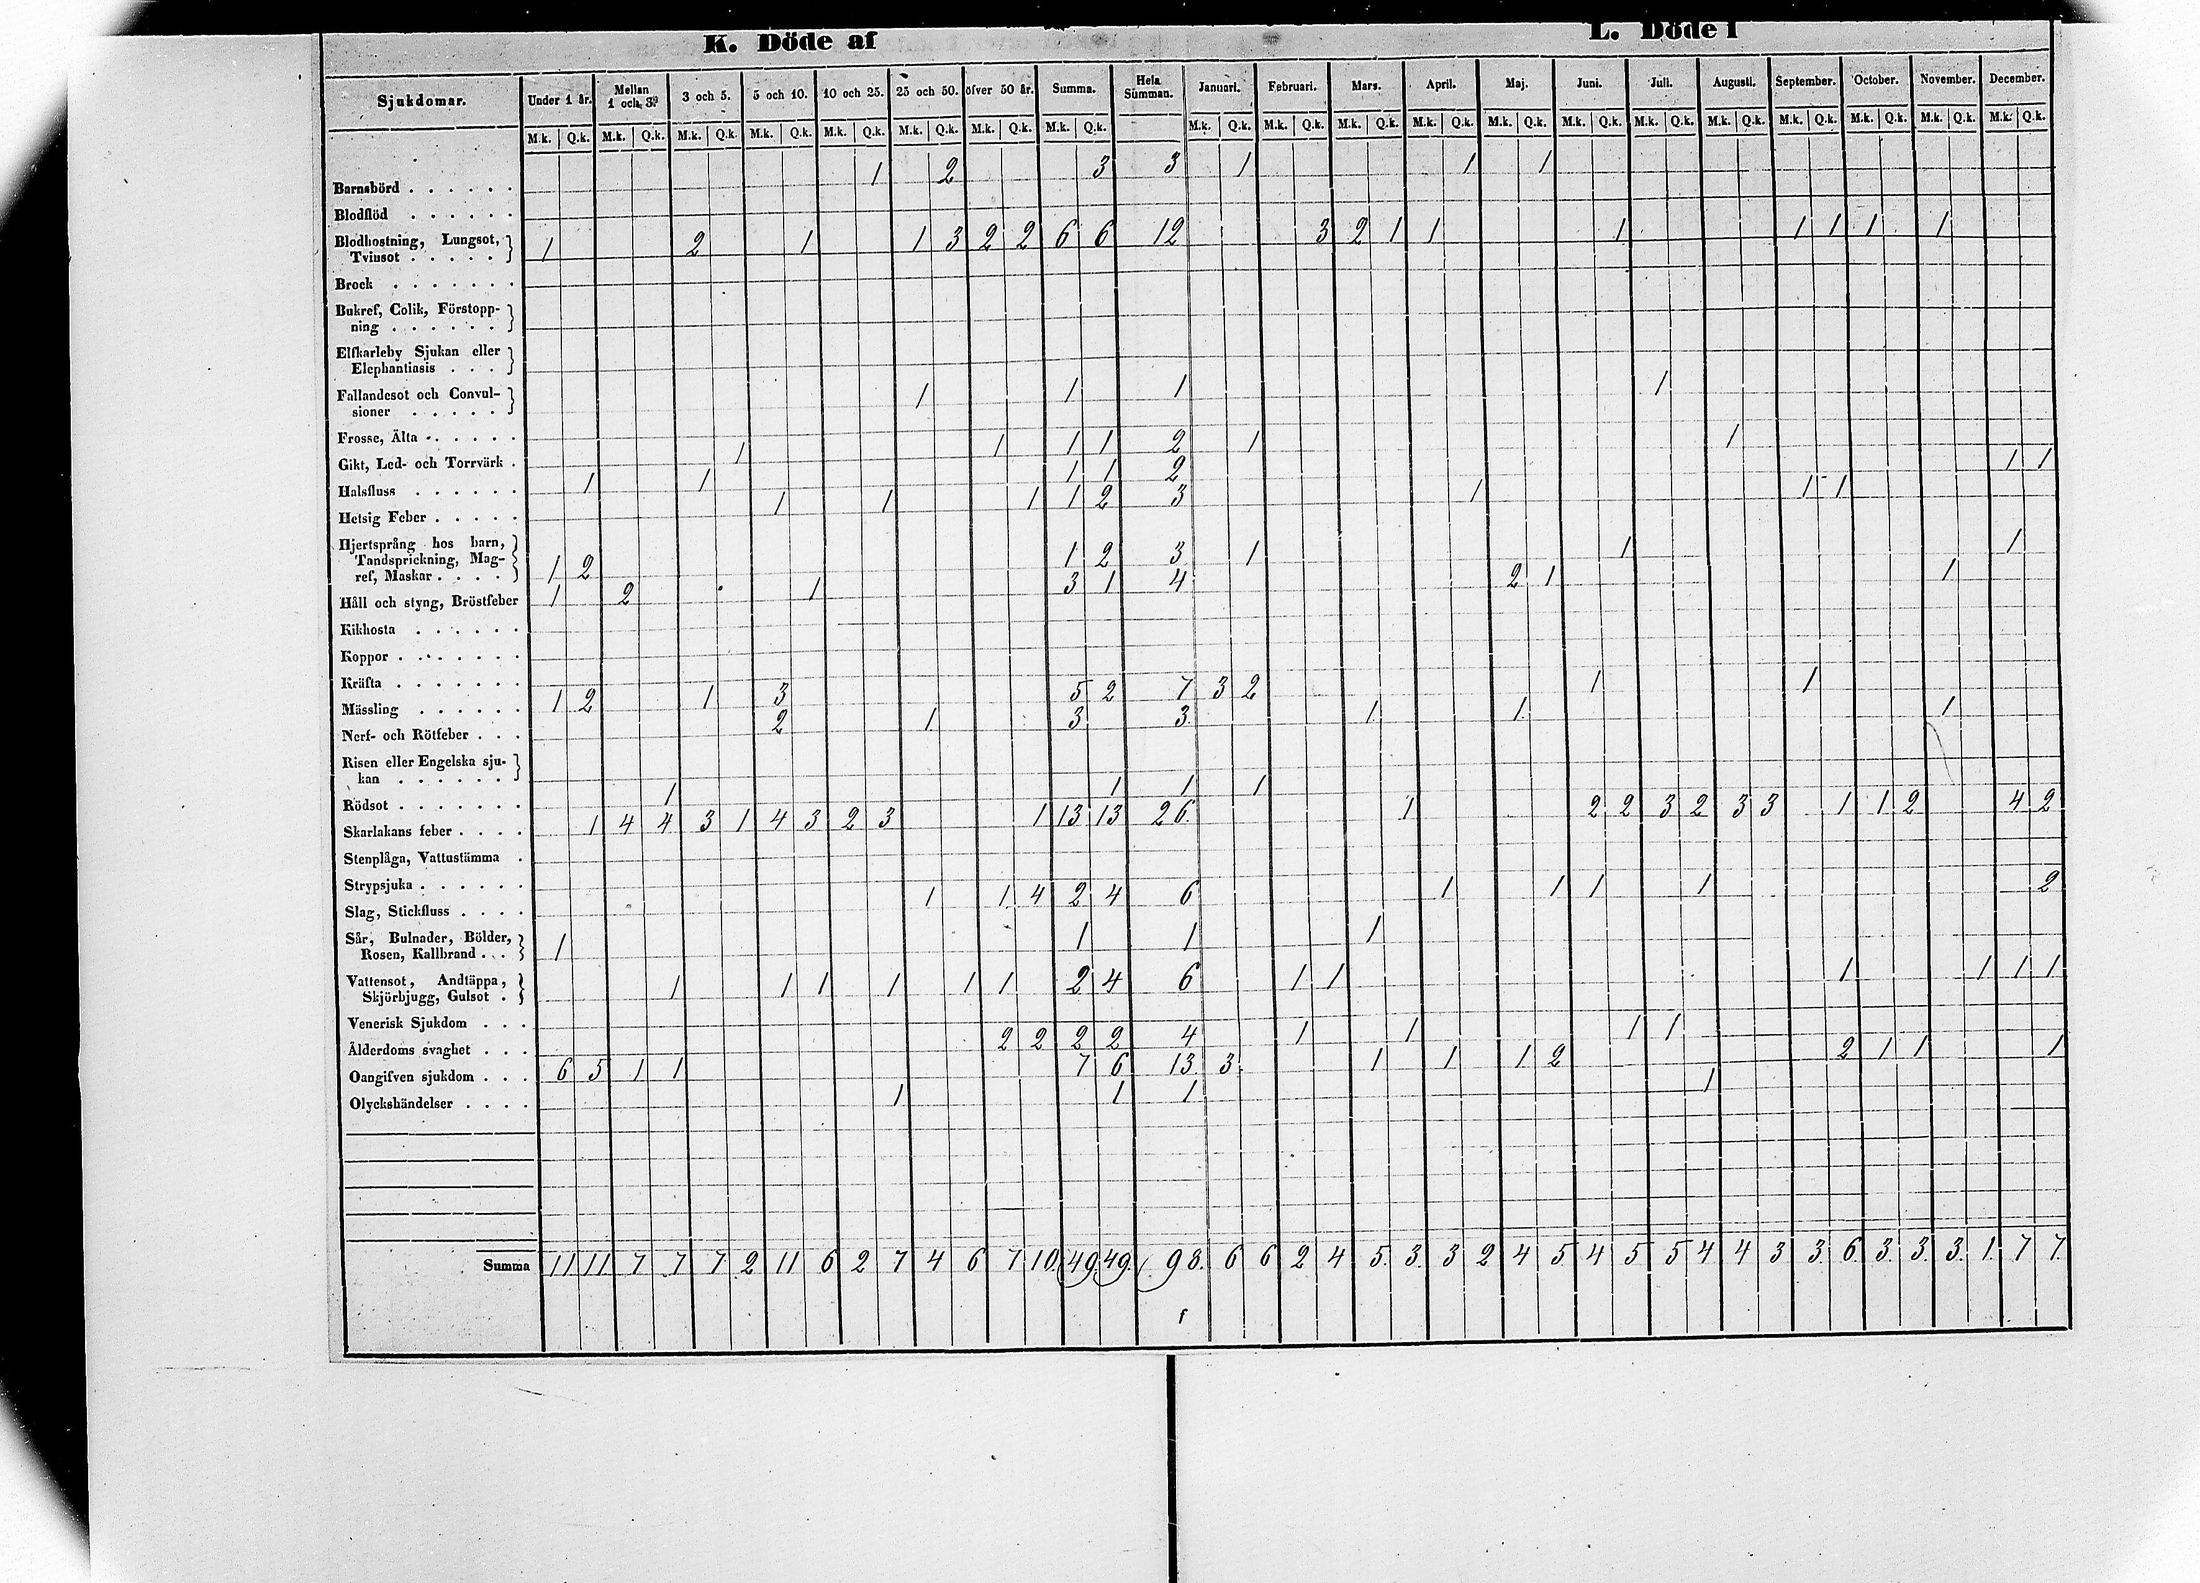 K. Döde af L. Döde i
Sjukdomar. Under 1 år. Mellan 1 och 3. 3 och 5. 5 och 10. 10 och 25. 25 och 50. öfver 50 år. Summa. Hela Summan. Januari. Februari. Mars. April. Maj. Juni. Juli. Augusti. September. October. November. December.
M.k. Q.k. M.k. Q.k. M.k. Q.k. M.k. Q.k. M.k. Q.k. M.k. Q.k. M.k. Q.k. M.k. Q.k. M.k. Q.k. M.k. Q.k. M.k. Q.k. M.k. Q.k. M.k. Q.k. M.k. Q.k. M.k. Q.k. M.k. Q.k. M.k. Q.k. M.k. Q.k. M.k. Q.k. M.k. Q.k.
Barnsbörd . . . . . . 1 2 3 3 1 1 1
Blodflöd . . . . . .
Blodhostning, Lungsot,
Tvinsot . . . . . 1 2 1 1 3 2 2 6 6 12 3 2 1 1 1 1 1 1 1
Brock . . . . . . .
Bukref, Colik, Förstopp-
ning . . . . . .
Elfkarleby Sjukan eller
Elephantiasis . . .
Fallandesot och Convul-
sioner . . . . . 1 1 1 1
Frosse, Älta . . . . .
Gikt, Led- och Torrvärk . 1 1 1 1 2 1 1
Halsfluss . . . . . . 1 1 1 1 2 1 1
Hetsig Feber . . . . . 1 1 1 1 2 3 1 1 1
Hjertsprång hos barn,
Tandsprickning, Mag-
ref, Maskar . . . . 1 2 1 2 3 1 1 1
Håll och styng, Bröstfeber 1 2 1 3 1 4 2 1 1
Kikhosta . . . . . .
Koppor . . . . . . .
Kräfta . . . . . . .
Mässling . . . . . . 1 2 1 3 5 2 7 3 2 1 1
Nerf- och Rötfeber . . . 2 1 3 3 1 1 1
Risen eller Engelska sju-
kan . . . . . .
Rödsot . . . . . . . 1 1 1 1
Skarlakans feber . . . . 1 4 4 3 1 4 3 2 3 1 13 13 26 1 2 2 3 2 3 3 1 1 2 4 2
Stenplåga, Vattustämma .
Strypsjuka . . . . . .
Slag, Stickfluss . . . . 1 1 4 2 4 6 1 1 1 1 2
Sår, Bulnader, Bölder,
Rosen, Kallbrand . . . 1 1 1 1
Vattensot, Andtäppa,
Skjörbjugg, Gulsot . 1 1 1 1 1 1 2 4 6 1 1 1 1 1 1
Venerisk Sjukdom . . .
Ålderdoms svaghet . . . 2 2 2 2 4 1 1 1 1
Oangifven sjukdom . . . 6 5 1 1 7 6 13 3 1 1 1 2 2 1 1 1
Olyckshändelser . . . . 1 1 1 1
Summa 11 11 7 7 7 2 11 6 2 7 4 6 7 10 49 49 98 6 6 2 4 5 3 3 2 4 5 4 5 5 4 4 3 3 6 3 3 3 1 7 7